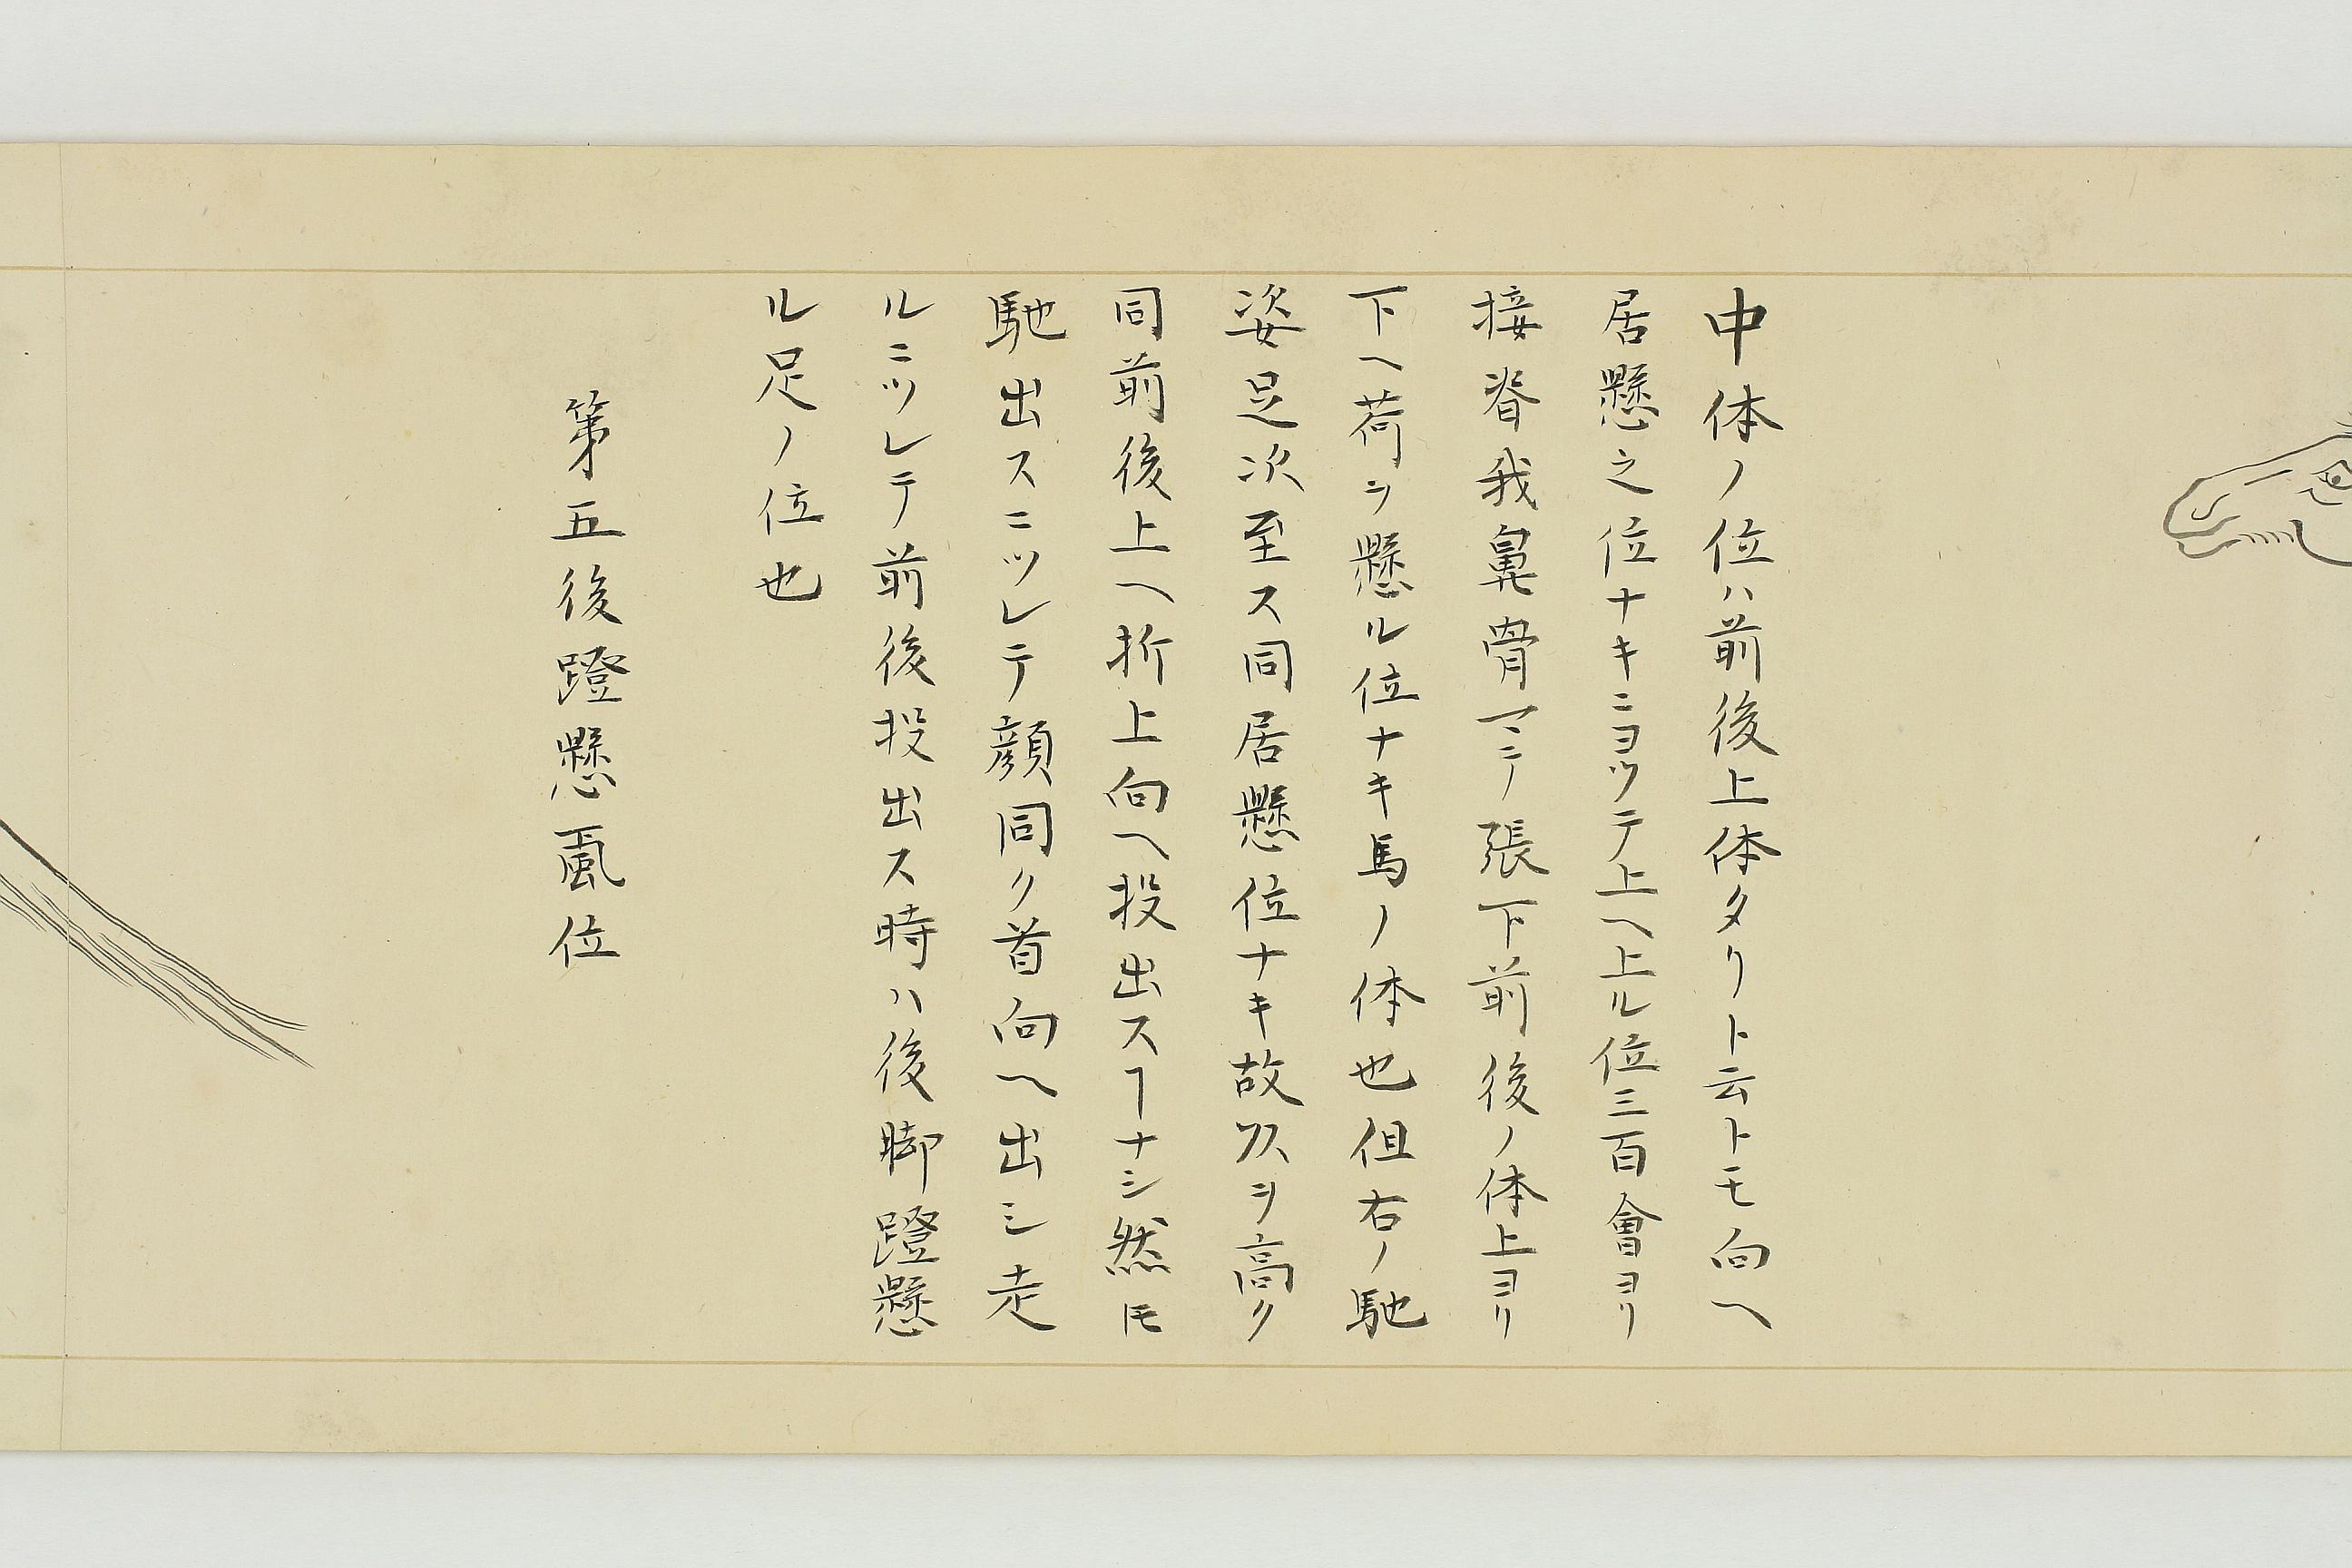 中体ノ位ハ前後上体タリト云トモ向ヘ
居懸之位ナキニヨツテ上ヘ上ル位三百會ヨリ
接脊我鼻骨マテ張下前後ノ体上ヨリ
下ヘ荷ヲ懸ル位ナキ馬ノ体也但右ノ馳
姿足次至ス同居懸位ナキ故ヌヲ高ク
同前後上ヘ折上向ヘ投出スヿナシ然𪜈
馳出スニツレテ顔同ク首向ヘ出シ走
ルニツレテ前後投出ス時ハ後脚蹬懸
ル足ノ位也
第五後蹬懸䬃位